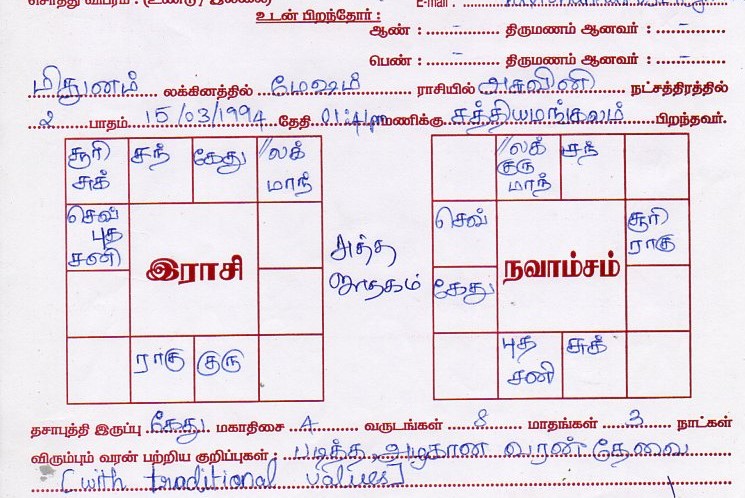 சொத்து விபரம் : (உண்டு / இல்லை)
E-mail :
உடன் பிறந்தோர் :
ஆண் : - திருமணம் ஆனவர் : -
பெண் : - திருமணம் ஆனவர் : -
மிதுனம் லக்கினத்தில் மேஷம் ராசியில் அசுவினி நட்சத்திரத்தில்
2 பாதம் 15/03/1994 தேதி 01:41 pm மணிக்கு சத்தியமங்கலம் பிறந்தவர்.
சூரி சுக்
சந்
கேது
லக் மாந்
செவ் புத சனி
இராசி
ராகு
குரு
அத்த ஜாதகம்
லக் குரு மாந்
சந்
செவ்
சூரி ராகு
நவாம்சம்
கேது
புத சனி
சுக்
தசாபுத்தி இருப்பு கேது மகாதிசை 4 வருடங்கள் 8 மாதங்கள் 3 நாட்கள்
விரும்பும் வரன் பற்றிய குறிப்புகள் : படித்த அழகான வரன் தேவை
[with traditional values]